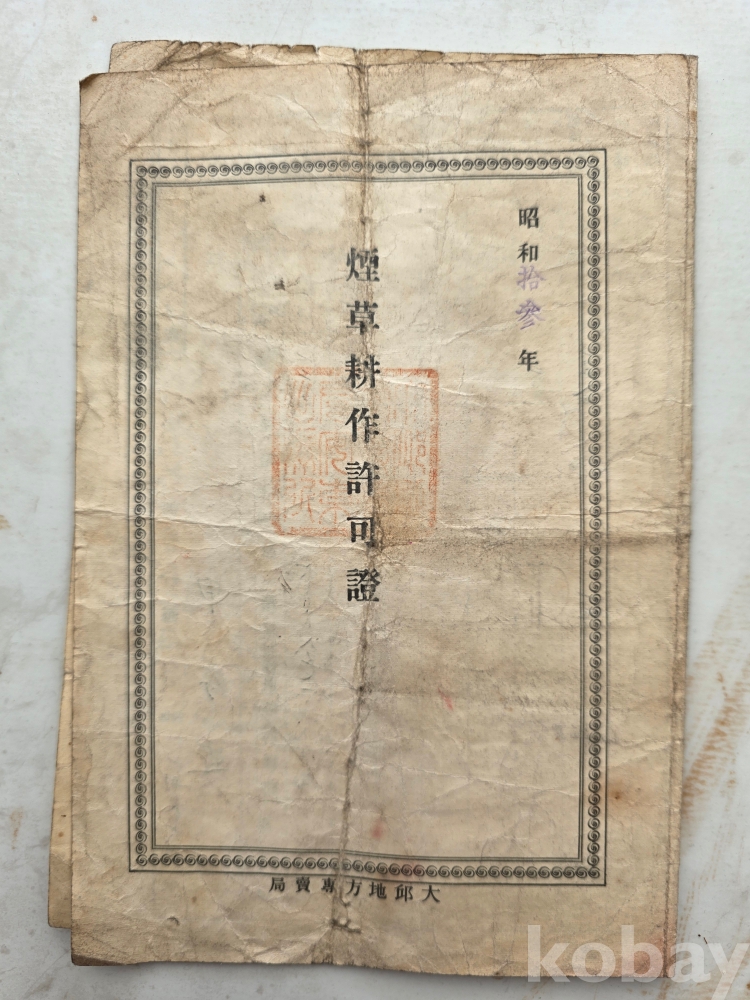 昭和拾參年
煙草耕作許可證
大邱地方專賣局
kobay